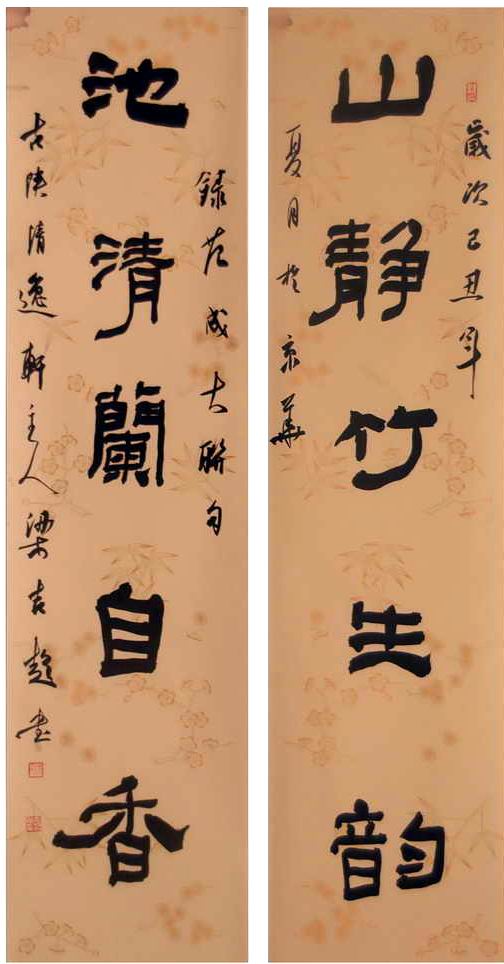 歲次己丑年
山静竹生韵
夏月於京華
錄范成大聯句
池清蘭自香
古陝清逸軒主人梁吉書